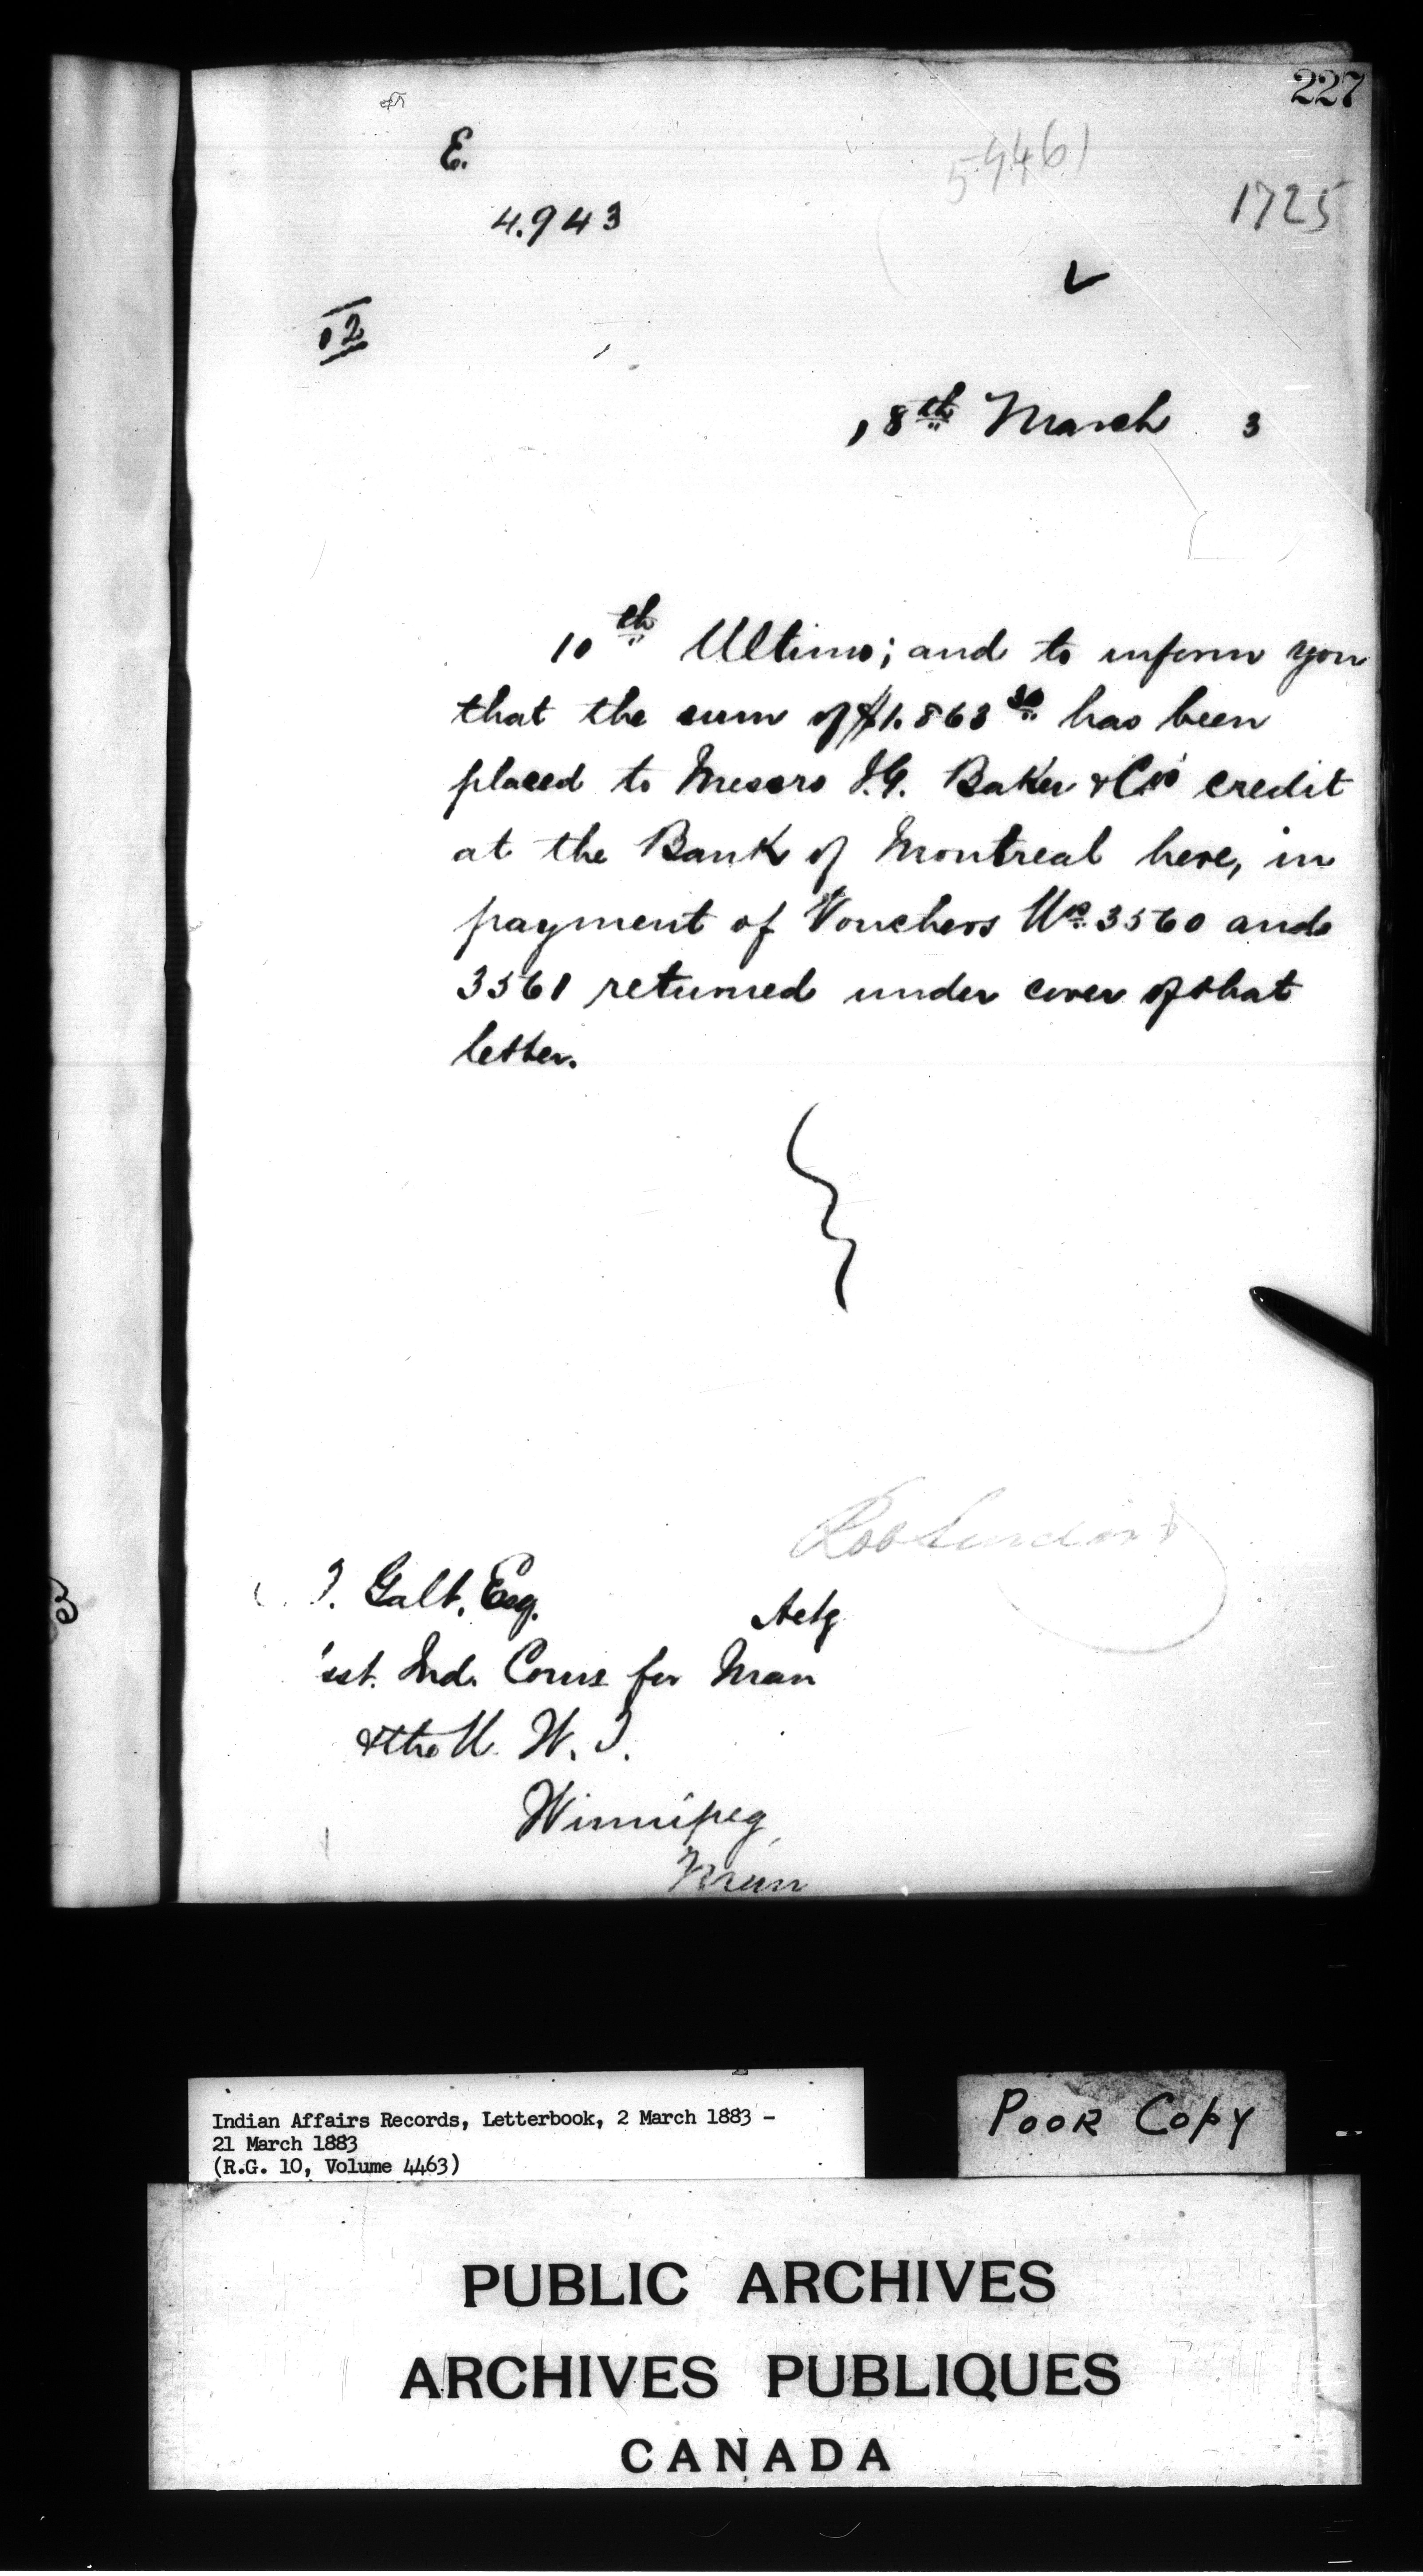 227
E.
59461
1725
4.943
12
18th March 3
10th Ultimo; and to inform you
that the sum of $1.863 30 has been
placed to Messrs I.G. Baker & Co's credit
at the Bank of Montreal here, in
payment of Vouchers Nos. 3560 and
3561 returned under cover of that
letter.
T. Galt, Esq.
Actg
sst. Ind. Coms for Man
& the N. W. T.
Winnipeg,
Man
Indian Affairs Records, Letterbook, 2 March 1883 -
21 March 1883
(R.G. 10, Volume 4463)
POOR COPY
PUBLIC ARCHIVES
ARCHIVES PUBLIQUES
CANADA